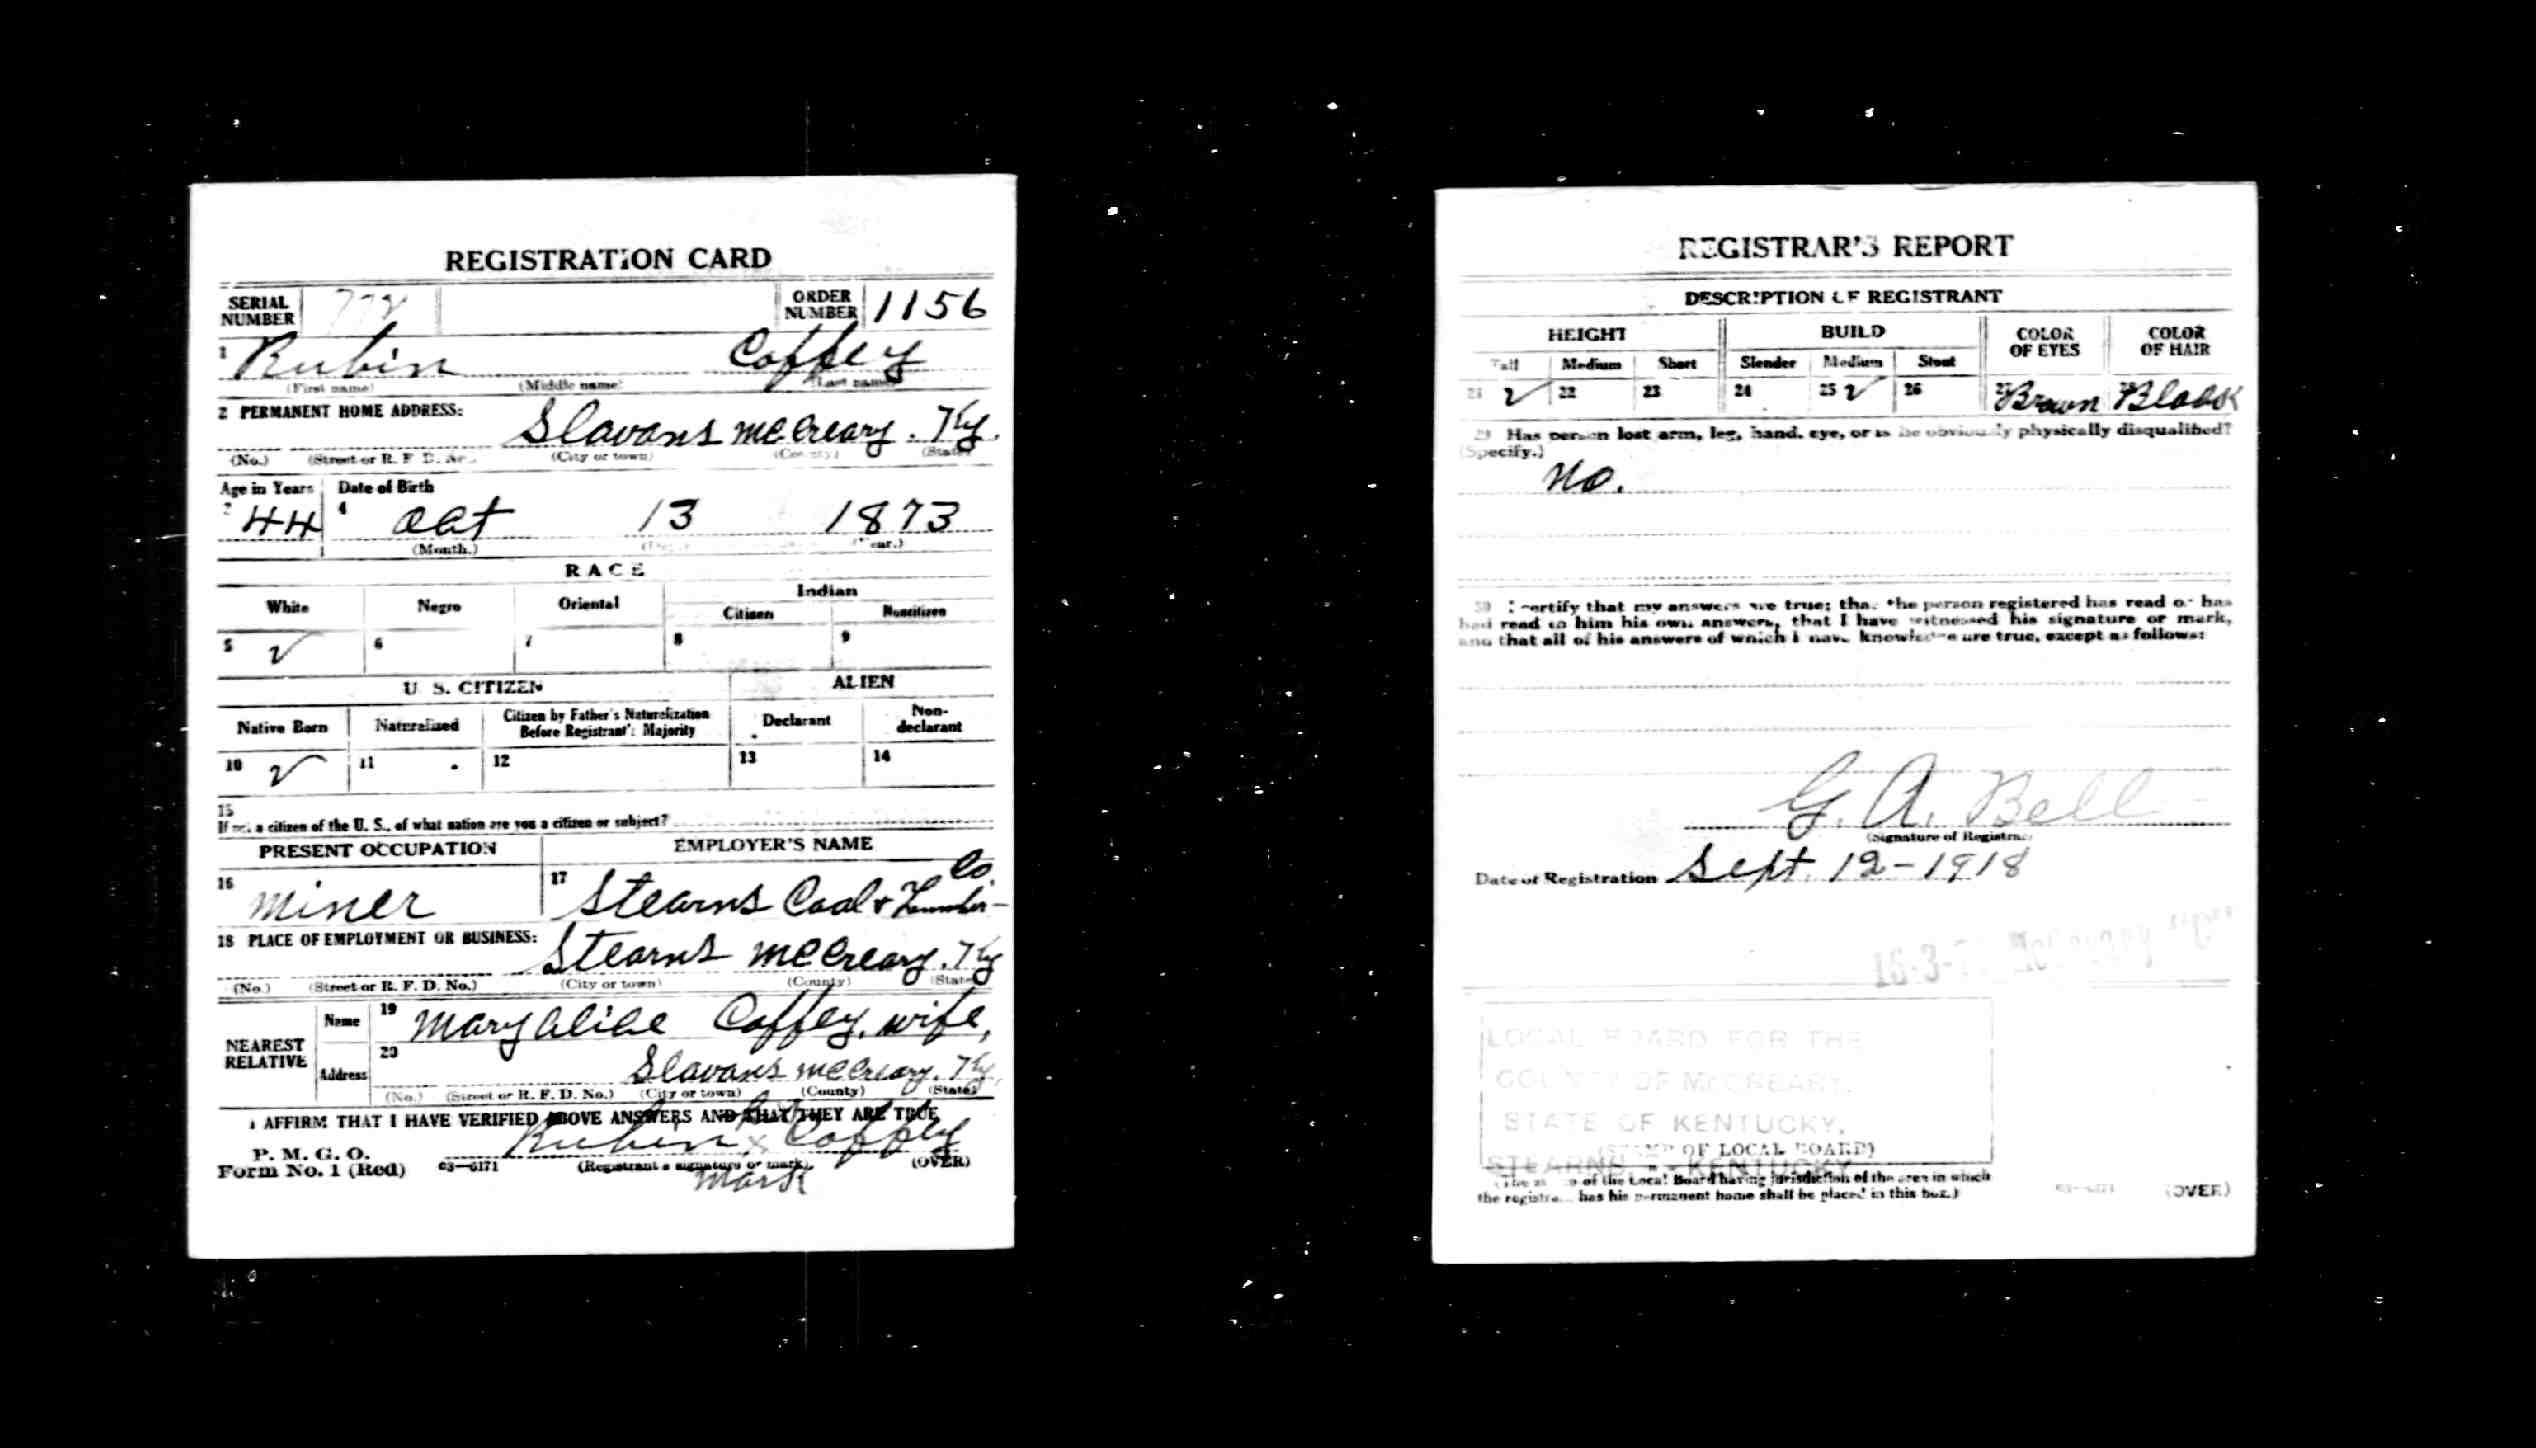 REGISTRATION CARD
SERIAL NUMBER ORDER NUMBER 1156
1 Rubin Coffey
(First name) (Middle name) (Last name)
2 PERMANENT HOME ADDRESS:
Slavans McCreary. Ky.
(No.) (Street or R. F. D. No.) (City or town) (County) (State)
Age in Years Date of Birth
44 4 Oct 13 1873
(Month.) (Day.) (Year.)
RACE
White Negro Oriental Indian
Citizen Noncitizen
5 ✓ 6 7 8 9
U. S. CITIZEN ALIEN
Native Born Naturalized Citizen by Father's Naturalization Before Registrant's Majority Declarant Non-declarant
10 ✓ 11 12 13 14
15
If not a citizen of the U. S., of what nation are you a citizen or subject?
PRESENT OCCUPATION EMPLOYER'S NAME
16 Miner 17 Stearns Coal & Lumber Co
18 PLACE OF EMPLOYMENT OR BUSINESS:
Stearns McCreary. Ky
(No.) (Street or R. F. D. No.) (City or town) (County) (State)
NEAREST RELATIVE
Name 19 Mary Alice Coffey, wife,
Address 20 Slavans McCreary. Ky.
(No.) (Street or R. F. D. No.) (City or town) (County) (State)
I AFFIRM THAT I HAVE VERIFIED ABOVE ANSWERS AND THAT THEY ARE TRUE
P. M. G. O.
Form No. 1 (Red) 03—6171
Rubin x Coffey
(Registrant's signature or mark) (OVER)
Mark
REGISTRAR'S REPORT
DESCRIPTION OF REGISTRANT
HEIGHT BUILD COLOR OF EYES COLOR OF HAIR
Tall Medium Short Slender Medium Stout
21 ✓ 22 23 24 25 ✓ 26 27 Brown 28 Black
29 Has person lost arm, leg, hand, eye, or is he obviously physically disqualified?
(Specify.)
No.
30 I certify that my answers are true; that the person registered has read or has
had read to him his own answers, that I have witnessed his signature or mark,
and that all of his answers of which I have knowledge are true, except as follows:
G. A. Bell
(Signature of Registrar)
Date of Registration Sept. 12-1918
LOCAL BOARD FOR THE
COUNTY OF McCREARY,
STATE OF KENTUCKY,
(STAMP OF LOCAL BOARD)
STEARNS, - KENTUCKY
(The stamp of the Local Board having jurisdiction of the area in which
the registrant has his permanent home shall be placed in this box.)
(OVER)